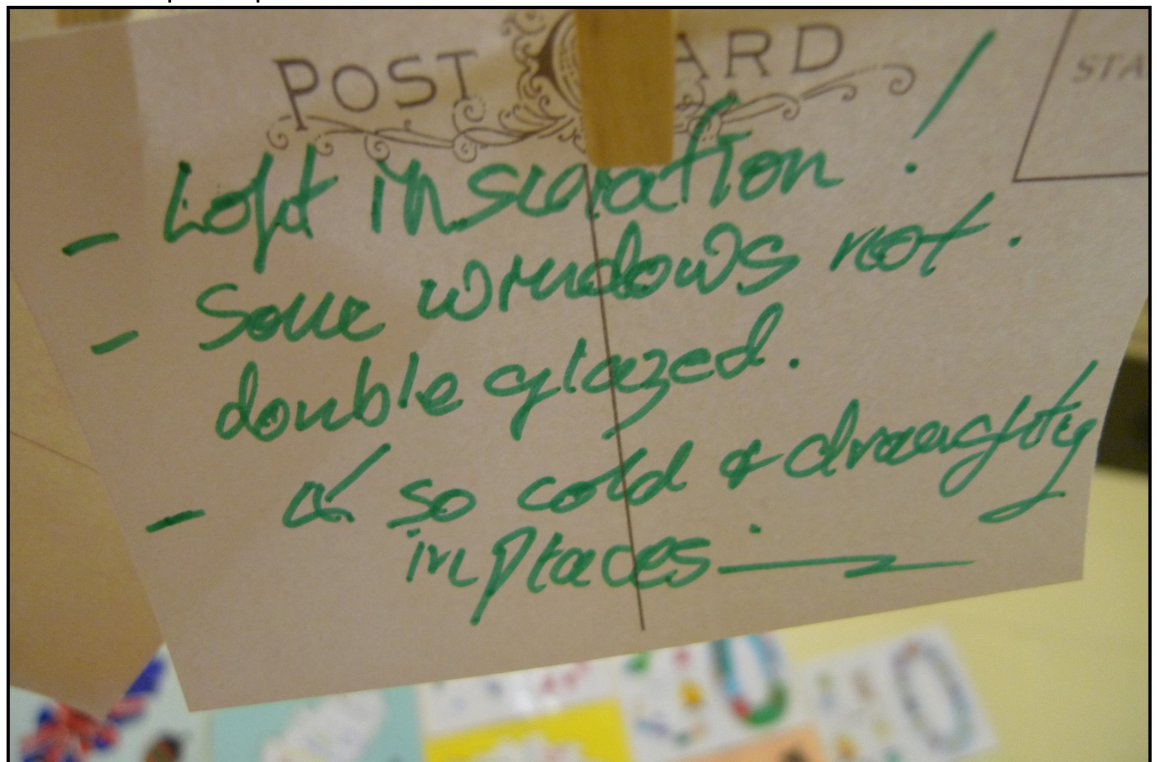 POST CARD
STA
- Loft insulation !
- Some windows not.
double glazed.
- so cold & draughty
in places.